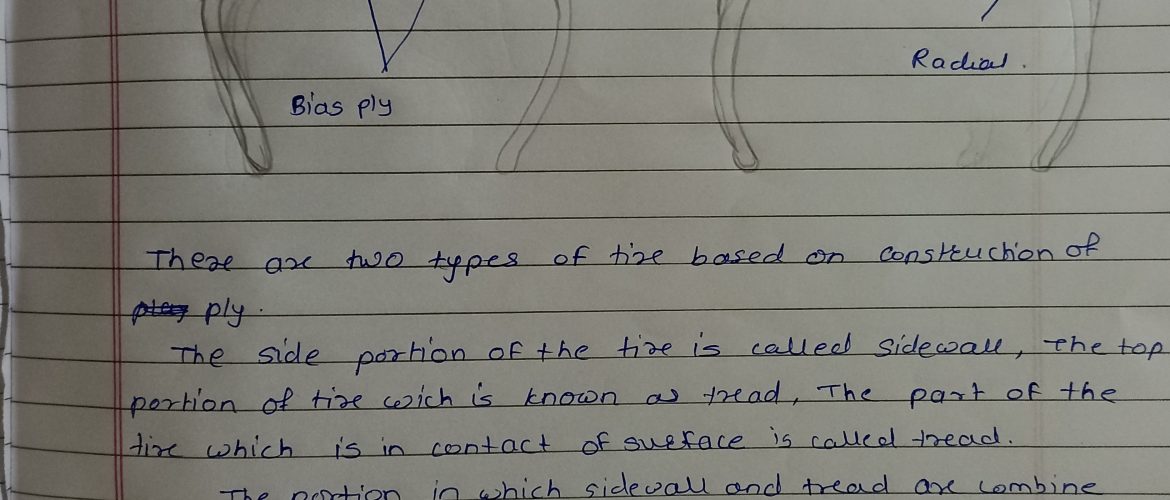 Radial.
Bias ply
There are two types of tire based on construction of
ply.
The side portion of the tire is called sidewall, the top
portion of tire wich is known as tread, The part of the
tire which is in contact of surface is called tread.
The portion in which sidewall and tread are combine